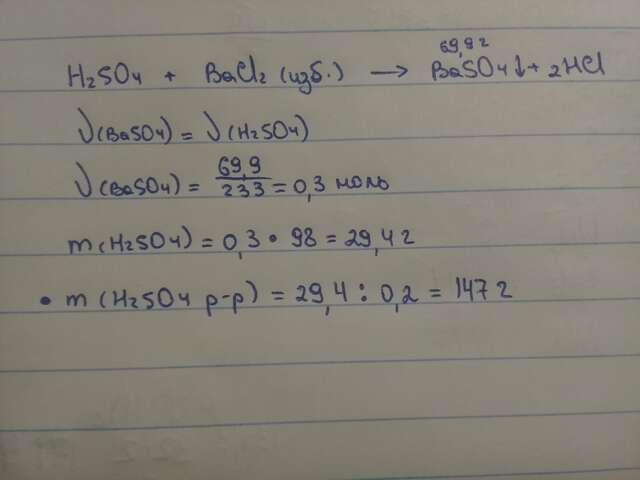 69,9 г
H₂SO₄ + BaCl₂ (изб.) → BaSO₄↓ + 2HCl
ν(BaSO₄) = ν(H₂SO₄)
ν(BaSO₄) = 69,9/233 = 0,3 моль
m(H₂SO₄) = 0,3 • 98 = 29,4 г
• m (H₂SO₄ р-р) = 29,4 : 0,2 = 147 г